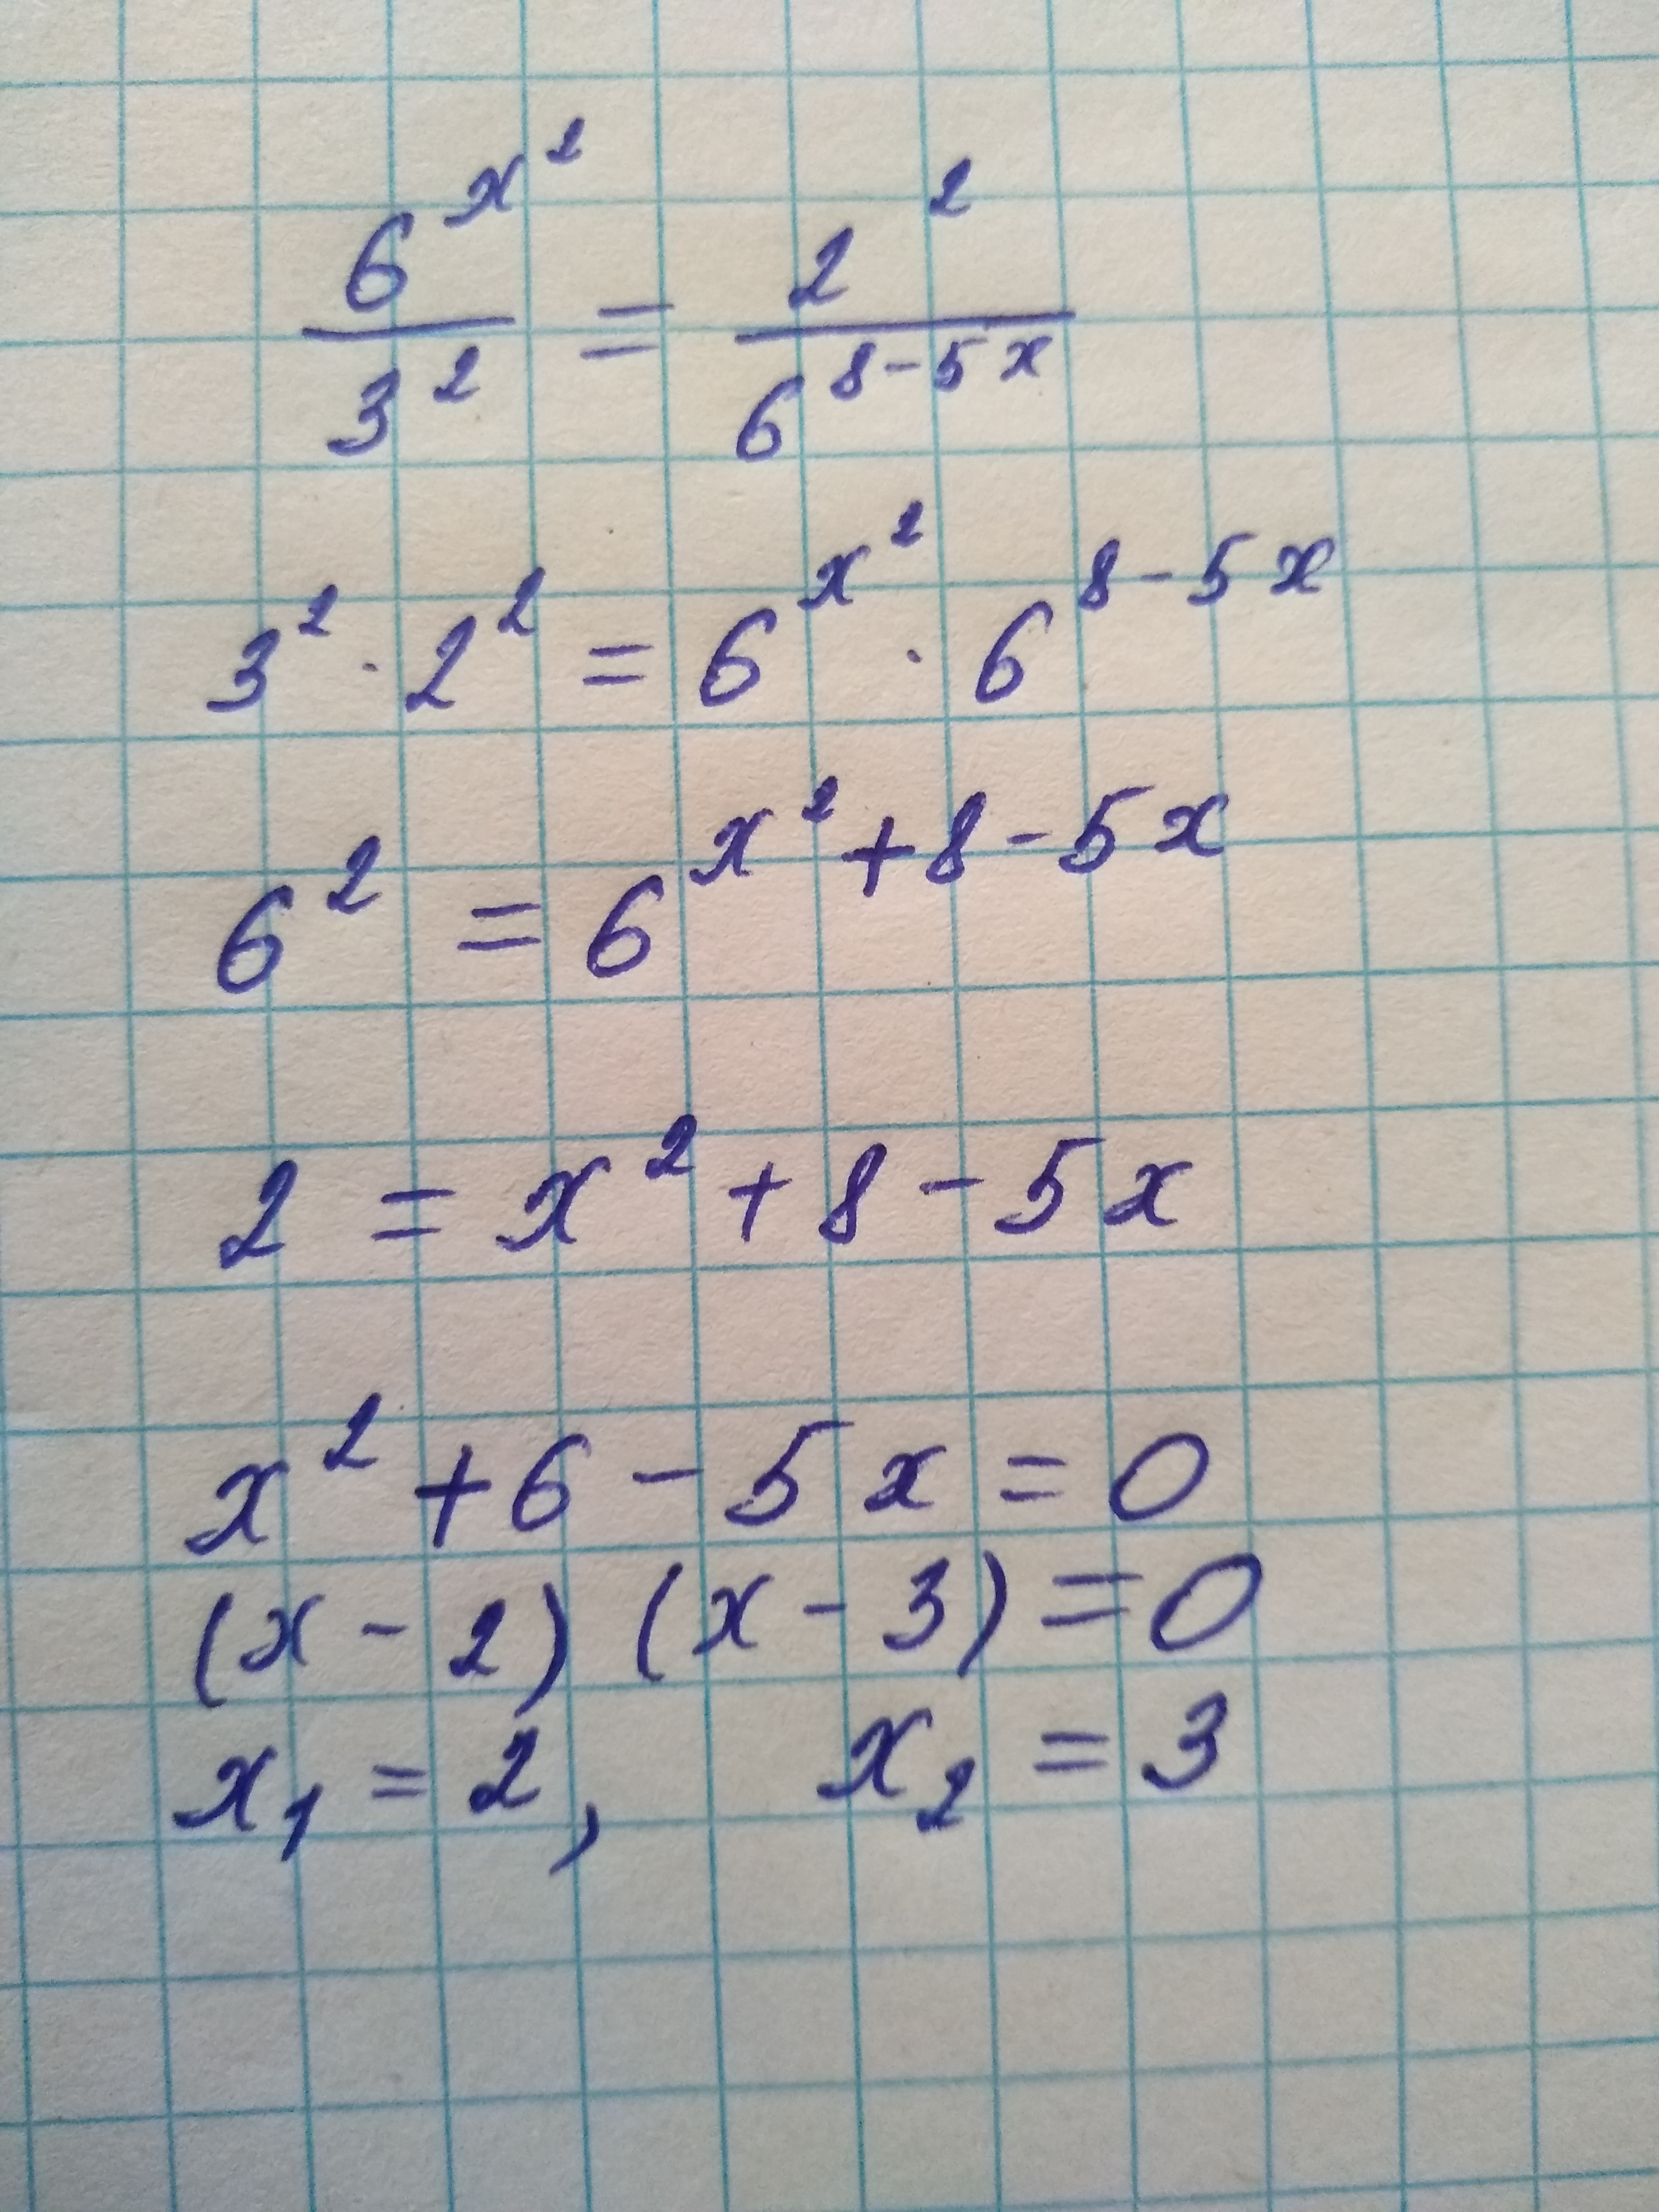 6^{x^2}/3^2 = 2^2/6^{8-5x}
3^2 · 2^2 = 6^{x^2} · 6^{8-5x}
6^2 = 6^{x^2+8-5x}
2 = x^2 + 8 - 5x
x^2 + 6 - 5x = 0
(x - 2) (x - 3) = 0
x_1 = 2, x_2 = 3